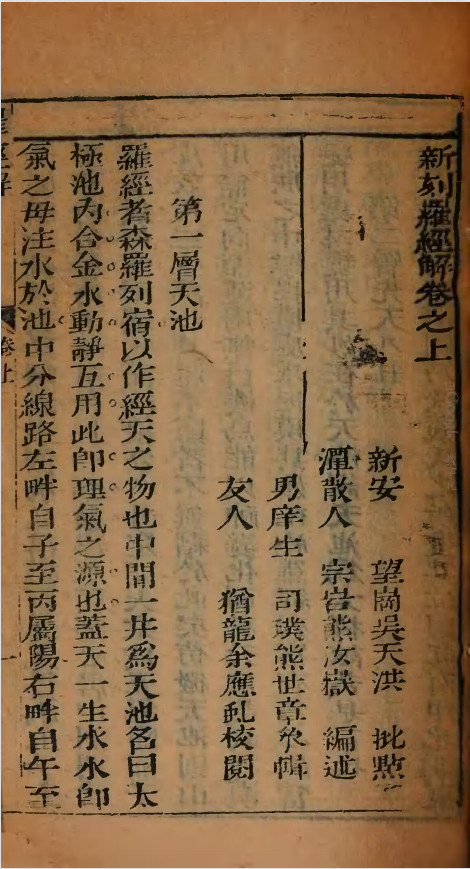 新刻羅經解卷之上
新安 望崗吳天洪 批點
潭散人 宗岩熊汝嶽 編述
男庠生 司璞熊世章 輯
友人 猶龍余應虬校閱
第一層天池
羅經者森羅列宿以作經天之物也中間一井爲天池名曰太
極池内合金水動靜互用此卽理氣之源也蓋天一生水水卽
氣之母注水於池中分線路左畔自子至丙屬陽右畔自午至
羅經解 卷上 一